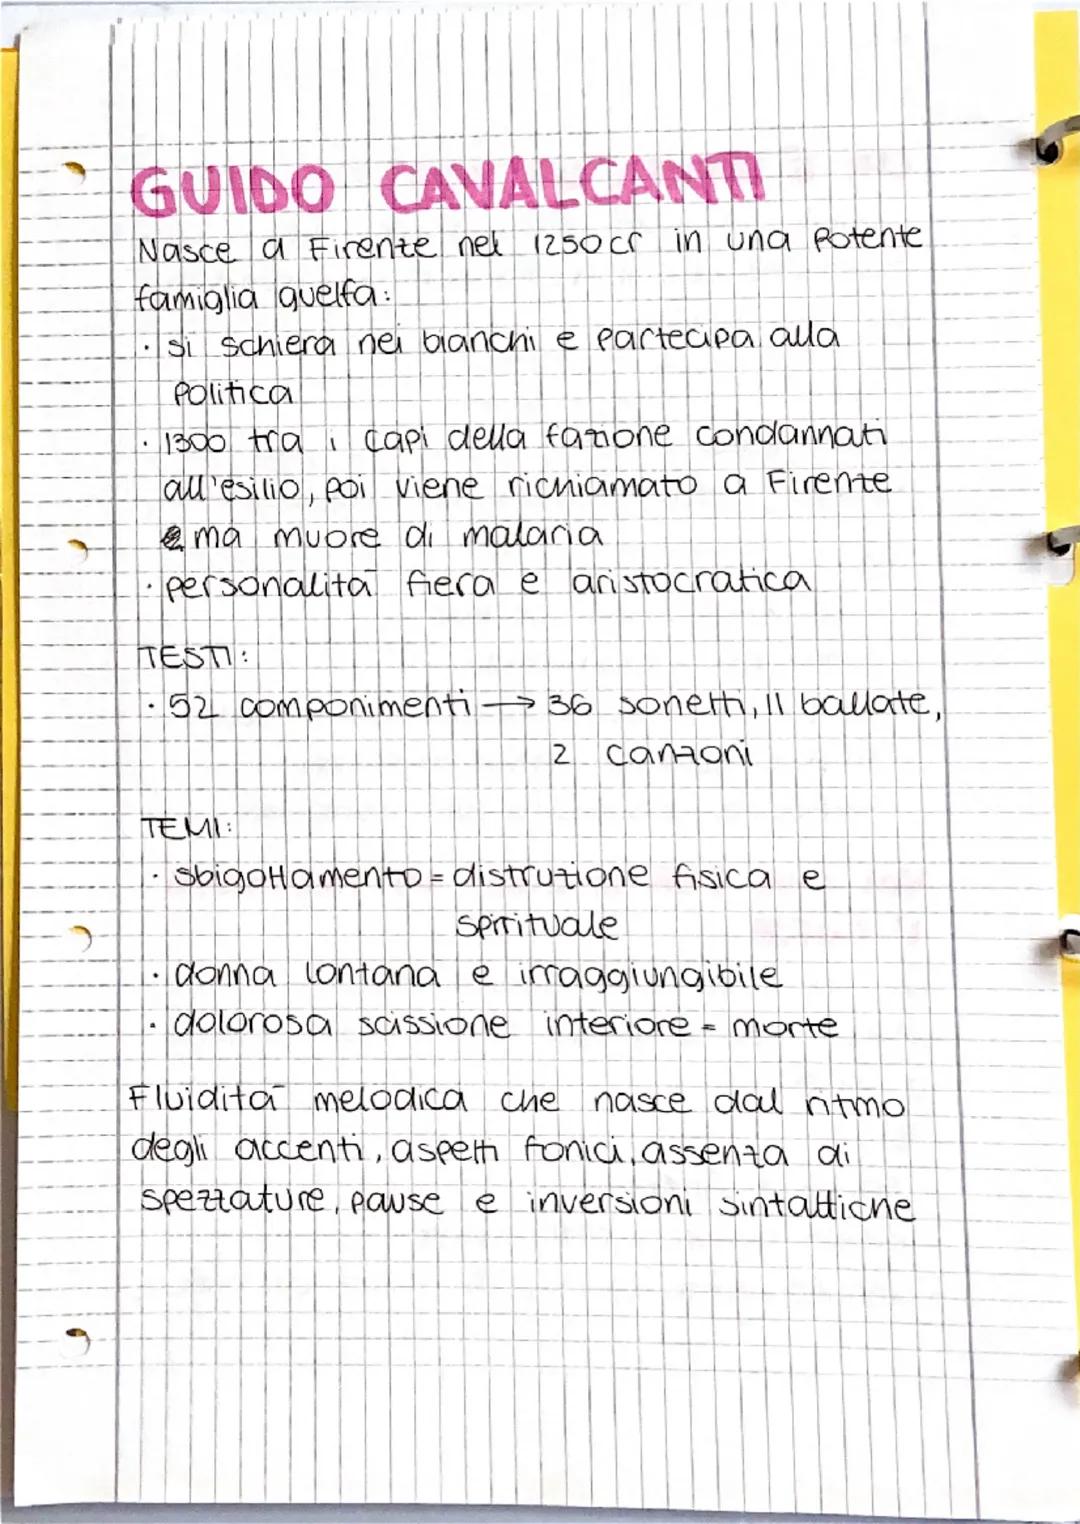 GUIDO CAVALCANTI
Nasce a Firenze nel 1250cr in una potente
famiglia guelfa:
· si schiera nei bianchi e partecipa alla
politica
· 1300 tra i capi della fazione condannati
all'esilio, poi viene richiamato a Firenze
ma muore di malaria
· personalità fiera e aristocratica
TESTI:
· 52 componimenti → 36 sonetti, 11 ballate,
2 canzoni
TEMI:
· sbigottamento = distruzione fisica e
spirituale
· donna lontana e irraggiungibile
· dolorosa scissione interiore = morte
Fluidità melodica che nasce dal ritmo
degli accenti, aspetti fonici, assenza di
spezzature, pause e inversioni sintattiche